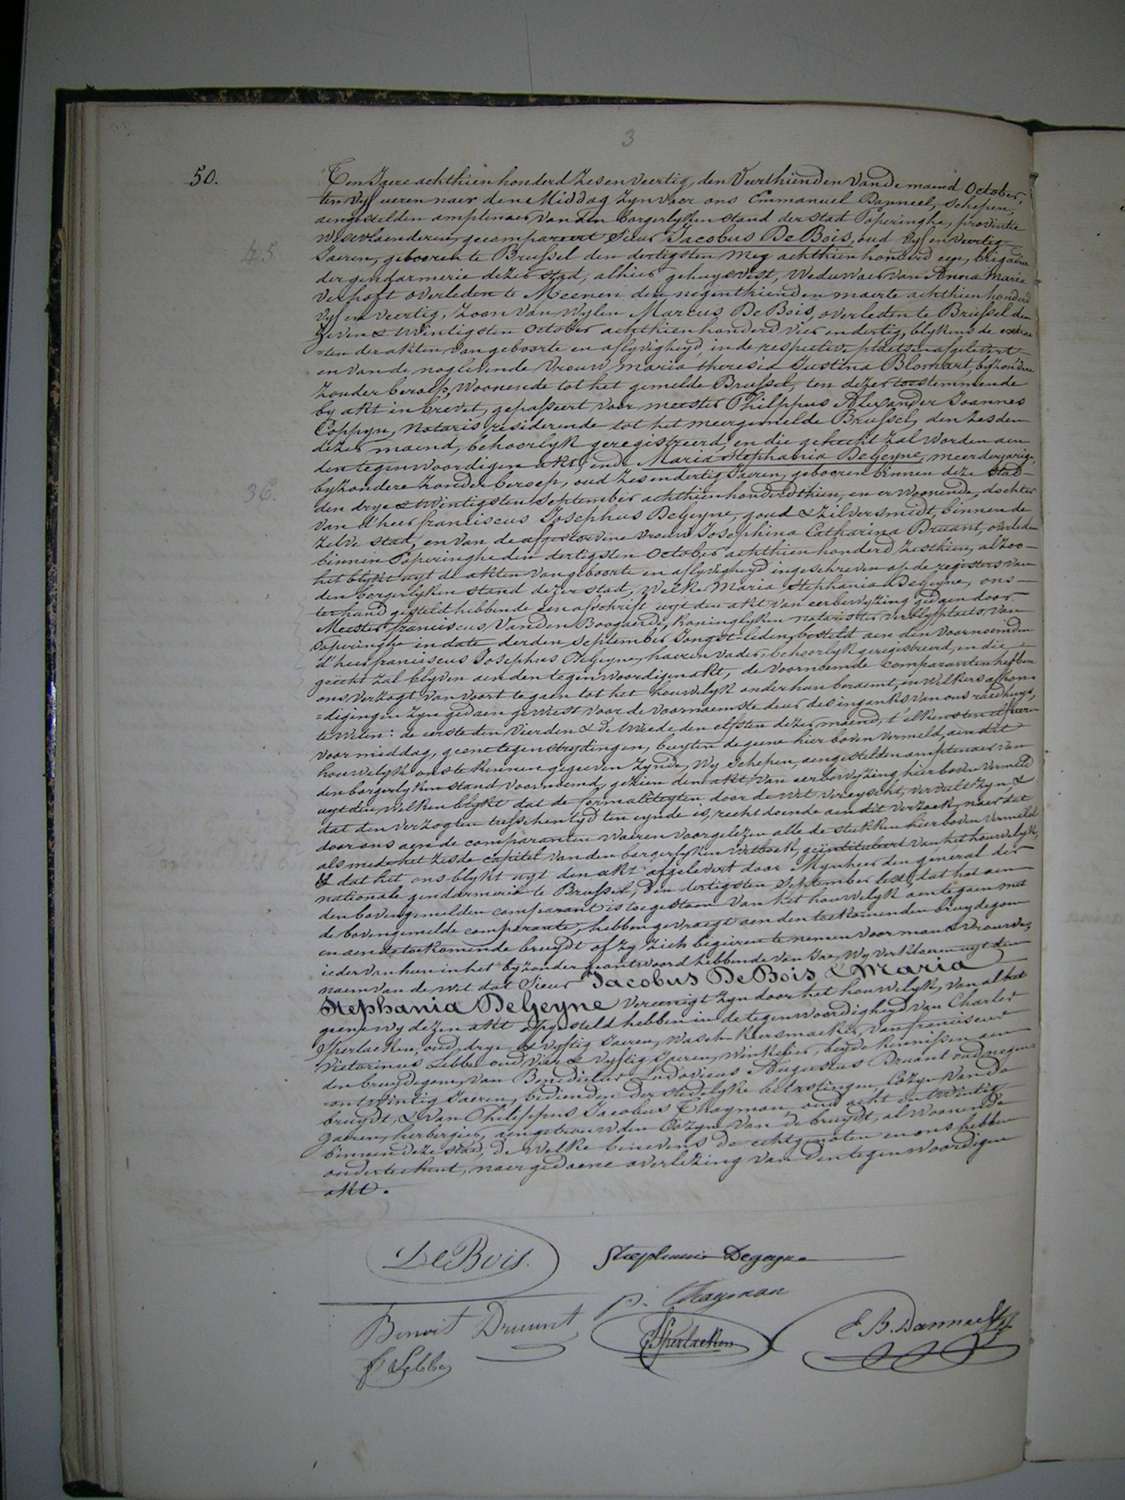 3
50.
Ten Jaere achthien honderd zesenveertig, den Veerthienden van de maend October,
ten vyf ueren naer den Middag zyn voor ons Emmanuel Banneel, Schepen,
aengestelden amptenaer van den borgerlyken stand der stad Poperinghe, provintie
Westvlaenderen, gecompareert Sieur Jacobus De Bois, oud vyf en veertig
45
Jaeren, gebooren te Brussel den dertigsten Mey achthien honderd een, brigadier
der gendarmerie dezer stad, alhier gehuysvest, weduwaer van Anna Maria
Verhoft overleden te Meenen den negenthienden maerte achthien honderd
vyf en veertig, zoon van wylen Marcus De Bois, overleden te Brussel den
zeven & twintigsten October achthien honderd vier en dertig, blykens de extrac-
ten der akten van geboorte en aflyvigheyd, in de respetive plaetsen afgelevert
en van de nog levende Vrouw maria theresia Justina Blomart, byzondere
zonder beroep, woonende tot het gemelde Brussel, ten dezer toestemmende
by akt in brevet, gepasseert voor meester Philippus Alexander Joannes
Coppyn, Notaris residerende tot het meergemelde Brussel, den zesden
dezer maend, behoorlyk geregistreerd, en die gehecht zal worden aen
den tegenwoordigen akt; ende Maria Stephania DeGeyne, meerderjarige
36.
byzondere zonder beroep, oud zesendertig Jaeren, gebooren binnen deze stad
den drye & twintigsten September achthien honderd thien, en er woonende, dochter
van d'heer franciscus Josephus DeGeyne, goud & zilversmidt, binnen de
zelve stad, en van de afgestorvene vrouw Josephina Catharina Druant, overleden
binnen Poperinghe den dertigsten October achthien honderd zesthien, alzoo
het blykt uyt de akten van geboorte en aflyvigheyd ingeschreven op de registers van
den borgerlyken stand dezer stad, welke Maria Stephania DeGeyne, ons
ter hand gesteld hebbende een afschrift uyt den akt van eerbewyzing gedaen door
Meester franciscus Vanden Boogaerde, koninglyken notaris ter verblyfplaets van
Poperinghe in date derden September Jongst-leden, bestelt aen den voornoemden
d'heer franciscus Josephus DeGeyne, haeren vader, behoorlyk geregistreerd, en die
gehecht zal blyven aen den tegenwoordigen akt, de voornoemde comparanten hebben
ons verzogt van voort te gaen tot het houwelyk onder hun beraemt, en welkers afkon-
digingen zyn gedaen geweest voor de voornaemste deur des ingangs van ons raedhuys,
te weten: de eerste den vierden & de tweede den elfsten dezer maend, t'elkens ten elf uren
voormiddag, geene tegenstrydingen, buyten degeene hier boven vermeld, aen dit
houwelyk ons te kennen gegeven zynde, Wy Schepen, aengestelden amptenaer van
den borgerlyken stand voornoemd, gezien den akt van eerbewyzing hier boven vermeld
uyt den welken blykt dat de formaliteyten door de Wet vereyscht, vervult zyn, &
dat den verzogten tusschen tyd ten eynde is, recht doende aen dit verzoek, naer dat
door ons aen de comparanten waeren voorgelezen alle de stukken hier boven vermeld
als mede het zeste capitel van den borgerlyken Wetboek, geintituleert van het houwelyk,
& dat het ons blykt uyt den akt afgelevert door Mynheer den generael der
nationale gendarmerie te Brussel, den dertigsten September lest, dat het aen
den bovengemelden comparant is toegestaen van het houwelyk aen te gaen met
de bovengemelde comparante, hebben gevraegt aen den toekomenden bruydegom
en aen de toekomende bruydt of zy zich begeeren te nemen voor man & vrouw
ieder van hun in het byzonder geantwoord hebbende van Jae, Wy verklaeren uyt den
naem van de wet dat Sieur Jacobus De Bois & Maria
Stephania DeGeyne vereenigt zyn door het houwelyk, van al het
geene wy dezen akt opgesteld hebben in de tegenwoordigheyd van Charles
Isperlaeken, oud drye & vyftig Jaeren, waschkersmaeker, van franciscus
Victorinus Lebbe oud vier & vyftig Jaeren, winkelier, beyde kennissen aen
den bruydegom, van Benedictus Ludovicus Augustus Druant oud negen
entwintig Jaeren, bedienden der stedelyke belastingen, Cozyn van de
bruydt, & van Philippus Jacobus Chagman oud acht entwintig
Jaeren, herbergier, aengetrouwden Cozyn van de bruydt, al woonende
binnen deze stad, de welke benevens de echtgenoten en ons hebben
onderteekent, naer gedaene overlezing van den tegenwoordigen
akt.
De Bois. Stephanie Degeyne
Benoit Druant P. Chagman
f Lebbe C Isperlaeken E B. Banneel